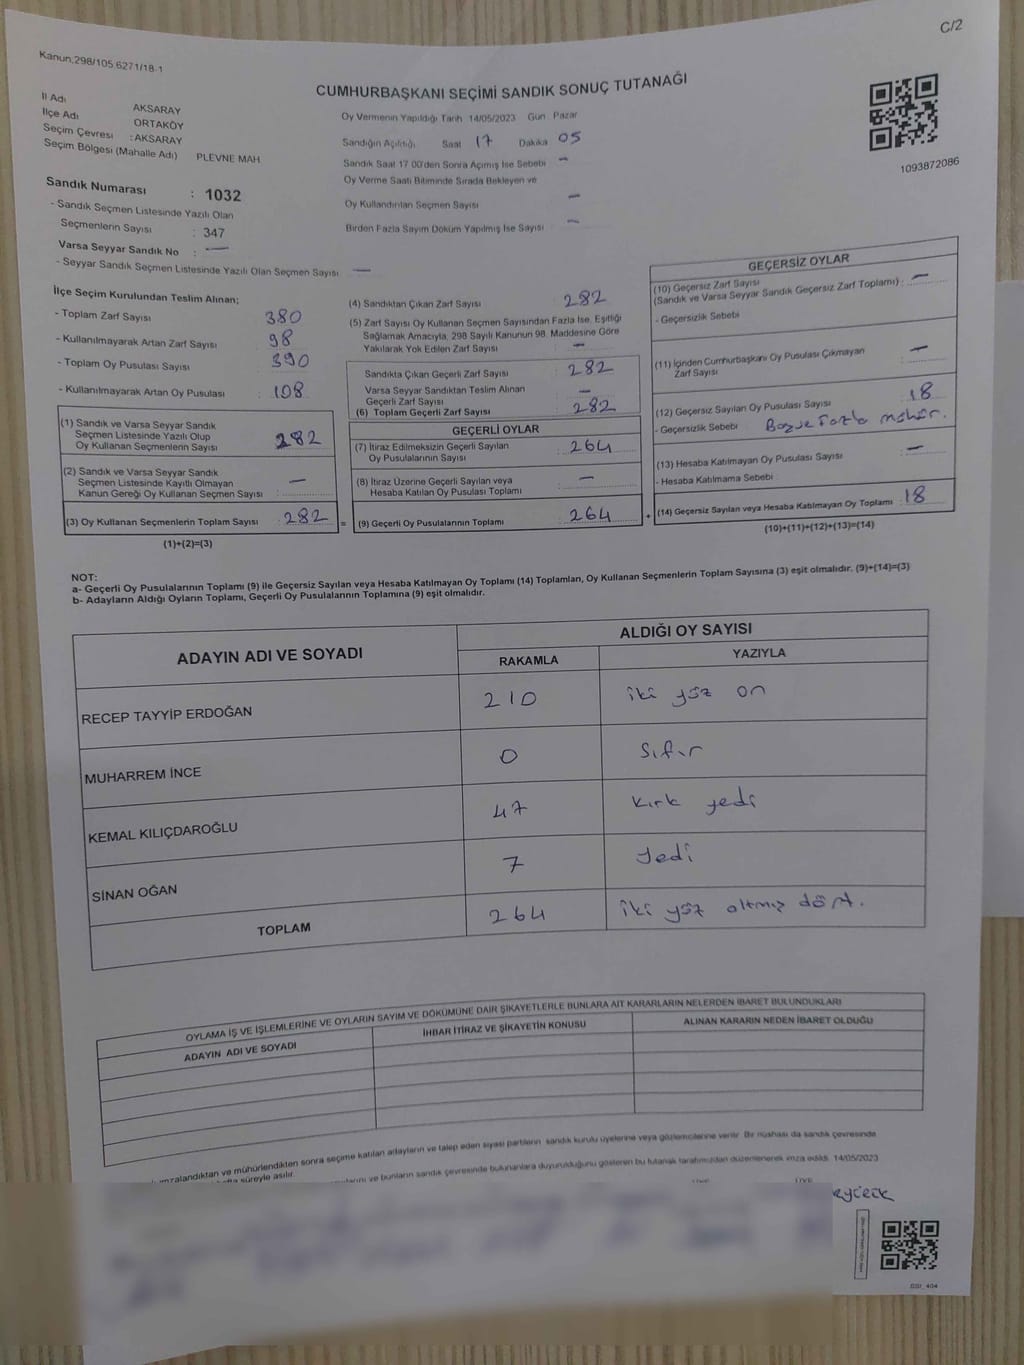 C/2
Kanun,298/105.6271/18-1
CUMHURBAŞKANI SEÇİMİ SANDIK SONUÇ TUTANAĞI
İl Adı AKSARAY
İlçe Adı ORTAKÖY
Seçim Çevresi : AKSARAY
Seçim Bölgesi (Mahalle Adı) PLEVNE MAH.
Sandık Numarası : 1032
- Sandık Seçmen Listesinde Yazılı Olan
Seçmenlerin Sayısı : 347
Varsa Seyyar Sandık No : —
- Seyyar Sandık Seçmen Listesinde Yazılı Olan Seçmen Sayısı —
Oy Vermenin Yapıldığı Tarih 14/05/2023 Gün Pazar
Sandığın Açıldığı Saat 17 Dakika 05
Sandık Saat 17 00'den Sonra Açımış İse Sebebi —
Oy Verme Saati Bitiminde Sırada Bekleyen ve
Oy Kullandırılan Seçmen Sayısı —
Birden Fazla Sayım Döküm Yapılmış İse Sayısı —
1093872086
İlçe Seçim Kurulundan Teslim Alınan;
- Toplam Zarf Sayısı 380
- Kullanılmayarak Artan Zarf Sayısı : 98
- Toplam Oy Pusulası Sayısı 390
- Kullanılmayarak Artan Oy Pusulası : 108
(1) Sandık ve Varsa Seyyar Sandık
Seçmen Listesinde Yazılı Olup
Oy Kullanan Seçmenlerin Sayısı : 282
(2) Sandık ve Varsa Seyyar Sandık
Seçmen Listesinde Kayıtlı Olmayan
Kanun Gereği Oy Kullanan Seçmen Sayısı : —
(3) Oy Kullanan Seçmenlerin Toplam Sayısı : 282 =
(1)+(2)=(3)
(4) Sandıktan Çıkan Zarf Sayısı : 282
(5) Zarf Sayısı Oy Kullanan Seçmen Sayısından Fazla İse, Eşitliği
Sağlamak Amacıyla, 298 Sayılı Kanunun 98. Maddesine Göre
Yakılarak Yok Edilen Zarf Sayısı : —
Sandıkta Çıkan Geçerli Zarf Sayısı : 282
Varsa Seyyar Sandıktan Teslim Alınan
Geçerli Zarf Sayısı : —
(6) Toplam Geçerli Zarf Sayısı : 282
GEÇERLİ OYLAR
(7) İtiraz Edilmeksizin Geçerli Sayılan
Oy Pusulalarının Sayısı : 264
(8) İtiraz Üzerine Geçerli Sayılan veya
Hesaba Katılan Oy Pusulası Toplamı : —
(9) Geçerli Oy Pusulalarının Toplamı : 264 +
GEÇERSİZ OYLAR
(10) Geçersiz Zarf Sayısı
(Sandık ve Varsa Seyyar Sandık Geçersiz Zarf Toplamı) : —
- Geçersizlik Sebebi
(11) İçinden Cumhurbaşkanı Oy Pusulası Çıkmayan
Zarf Sayısı : —
(12) Geçersiz Sayılan Oy Pusulası Sayısı : 18
- Geçersizlik Sebebi : Boş ve fazla mühür.
(13) Hesaba Katılmayan Oy Pusulası Sayısı : —
- Hesaba Katılmama Sebebi :
(14) Geçersiz Sayılan veya Hesaba Katılmayan Oy Toplamı : 18
(10)+(11)+(12)+(13)=(14)
NOT:
a- Geçerli Oy Pusulalarının Toplamı (9) ile Geçersiz Sayılan veya Hesaba Katılmayan Oy Toplamı (14) Toplamları, Oy Kullanan Seçmenlerin Toplam Sayısına (3) eşit olmalıdır. (9)+(14)=(3)
b- Adayların Aldığı Oyların Toplamı, Geçerli Oy Pusulalarının Toplamına (9) eşit olmalıdır.
ADAYIN ADI VE SOYADI ALDIĞI OY SAYISI
RAKAMLA YAZIYLA
RECEP TAYYİP ERDOĞAN 210 iki yüz on
MUHARREM İNCE 0 Sıfır
KEMAL KILIÇDAROĞLU 47 kırk yedi
SİNAN OĞAN 7 yedi
TOPLAM 264 iki yüz altmış dört.
OYLAMA İŞ VE İŞLEMLERİNE VE OYLARIN SAYIM VE DÖKÜMÜNE DAİR ŞİKAYETLERLE BUNLARA AİT KARARLARIN NELERDEN İBARET BULUNDUKLARI
ADAYIN ADI VE SOYADI İHBAR İTİRAZ VE ŞİKAYETİN KONUSU ALINAN KARARIN NEDEN İBARET OLDUĞU
imzalandıktan ve mühürlendikten sonra seçime katılan adayların ve talep eden siyasi partilerin sandık kurulu üyelerine veya gözlemcilerine verilir. Bir nüshası da sandık çevresinde
hafta süreyle asılır.
ve bunların sandık çevresinde bulunanlara duyurulduğunu gösteren bu tutanak tarafımızdan düzenlenerek imza edildi. 14/05/2023
GSI_404